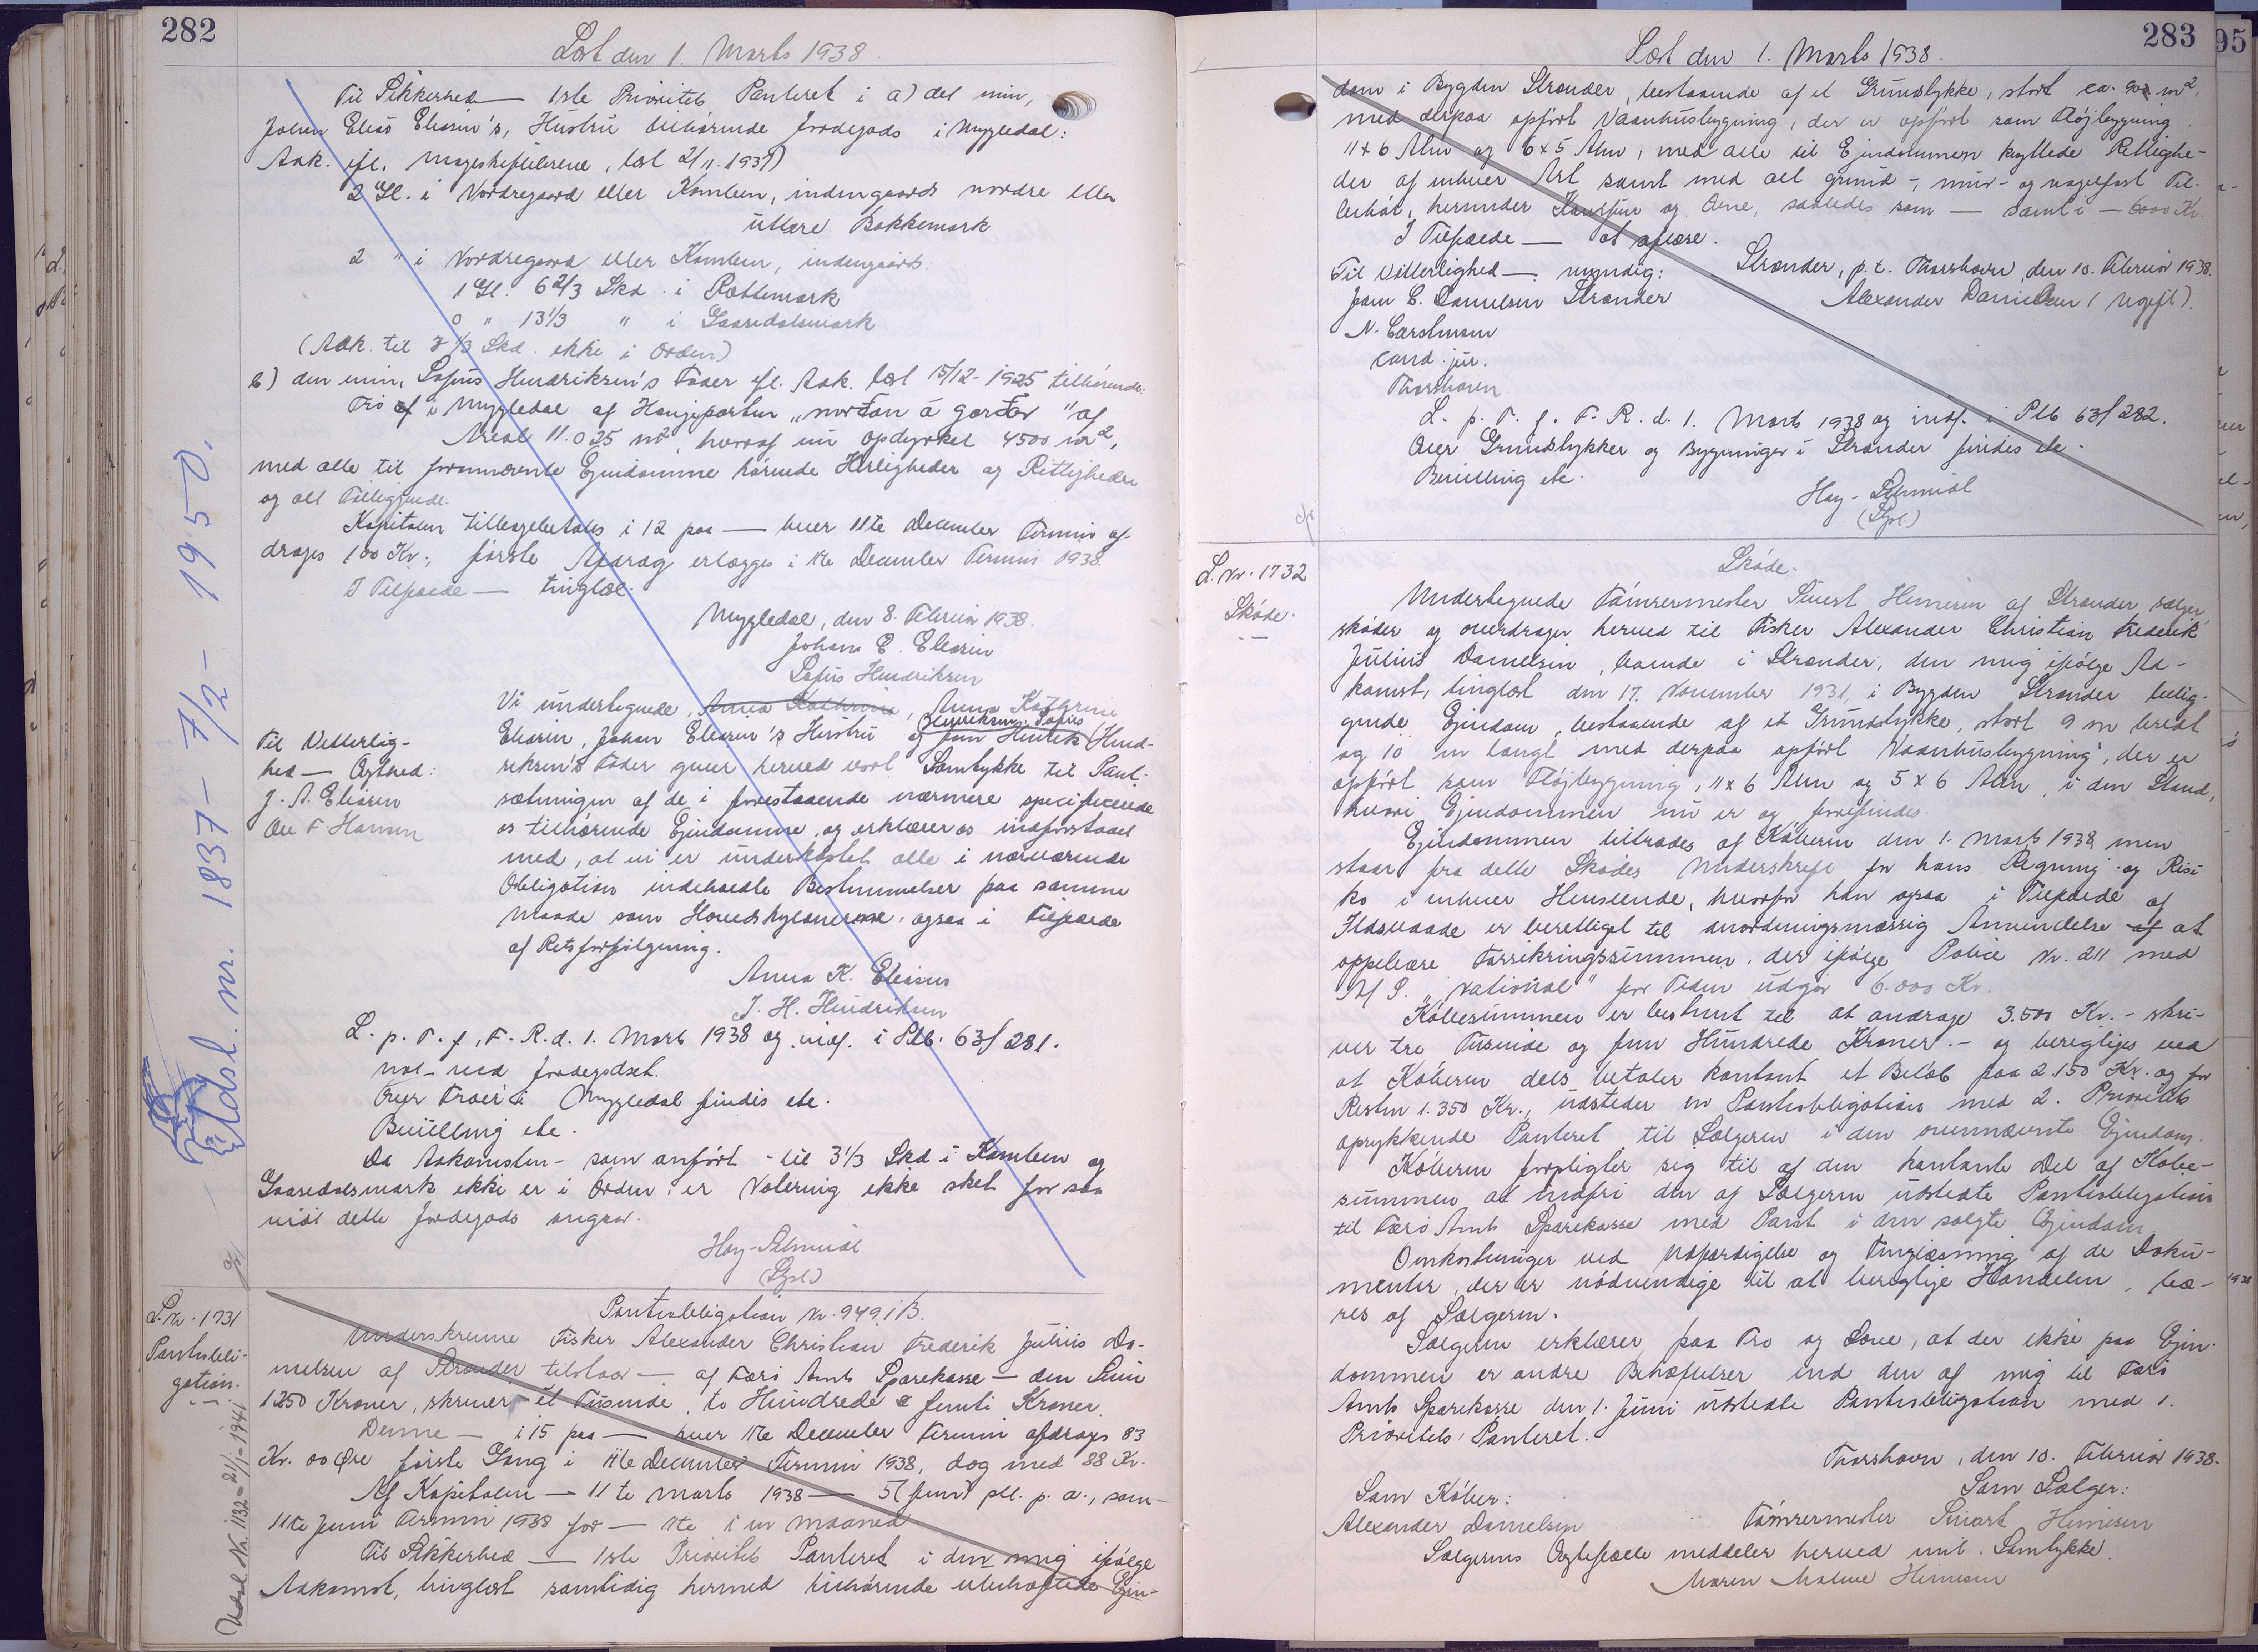 282
Læst den 1. Marts 1938.
Til Sikkerhed — 1ste Prioritets Panteret i a) det min,
Johan Elias Eliasen's, Hustru tilhørende Jordegods i Mygledal:
Adk. efl. Mageskifteskøde, læst 2/11. 1937)
2 Gl. i Nordregaard eller Kamben, indengaards nordre eller
uttare Bakkemark
2 " i Nordregaard eller Kamben, indengaards:
1 Gl. 6 2/3 Skd. i Rættemark
0 " 13 1/3 " i Gaardalsmark
(Adk. til 3 1/3 Skd. ikke i Orden)
b) den min, Sofus Hendriksen's Fader efl. Adk. læst 15/12-1925 tilhørende
Trø af i Mygledal af Haugeparten "norðan á garðar" af
Areal 11.025 m², hvoraf nu opdyrket 4500 m²,
med alle til forannævnte Ejendomme hørende Herligheder og Rettigheder
og alt Tilliggende.
Kapitalen tilbagebetales i 12 paa — hver 11te December Termin af-
drages 100 Kr.; første Afdrag erlægges i 11te December Termin 1938.
I Tilfælde — tinglæs.
Mygledal, den 8. Februar 1938.
Johan E. Eliasen
Sofus Hendriksen
Til Vitterlig-
hed — Ægthed:
J. A. Eliasen
Ole F Hansen
Vi undertegnede, Anna Kathrina, Anna Kathrine
Eliasen, Johan Eliasen's Hustru og Joen Henrik Hendriksen, Sofus Hend-
riksen's Fader giver herved vort Samtykke til Pant-
sætningen af de i forestaaende nærmere specificerede
os tilhørende Ejendomme, og erklærer os indforstaaet
med, at vi er underkastet alle i nærværende
Obligation indeholdte Bestemmelser paa samme
Maade som Hovedskyldnerne, ogsaa i Tilfælde
af Retsforfølgning.
Anna K. Eliasen
J. H. Hendriksen
L. p. T. f. F. R. d. 1. Marts 1938 og indf. i Ptb. 63/281.
Not. ved Jordegodset.
Over Trøer i Mygledal findes ete.
Bevilling ete.
Da Adkomsten - som anført - til 3 1/3 Skd i Kamben og
Gaardalsmark ikke er i Orden, er Notering ikke sket for saa
vidt dette Jordegods angaar.
Hay-Schmidt
(Spl.)
Udsl. nr. 1837 - 7/2 - 1950.
L. Nr. 1731
Pantobli-
gation.
Udsl. Nr. 1132 - 21/1 - 1941
Pantobligation Nr. 949 i B.
Underskrevne Fisker Alexander Christian Frederik Julius Da-
nielsen af Strænder tilstaar — af Færø Amts Sparekasse — den Sum
1250 Kroner, skriver et Tusinde, to Hundrede & femti Kroner.
Denne — i 15 paa — hver 11te December Termin afdrages 83
Kr. 00 Øre første Gang i 11te December Termin 1938, dog med 88 Kr.
Af Kapitalen — 11te Marts 1938 — 5 (fem) pCt. p. a., som —
11te Juni Termin 1938 for — 11te i en Maaned
Til Sikkerhed — 1ste Prioritets Panteret i den mig ifølge
Adkomst, tinglæst samtidig hermed tilhørende ubehæftede Ejen-
283
Læst den 1. Marts 1938.
dom i Bygden Strænder, bestaaende af et Grundstykke, stort ca. 90 m²,
med derpaa opført Vaaninhusbygning, der er opført som Fløjbygning
11 x 6 Alen og 6 x 5 Alen, med alle til Ejendommen knyttede Rettighe-
der af enhver Art samt med alt grund-, mur- og nagelfast Til-
behør, herunder Komfur og Ovne, saaledes som — samt i — 6000 Kr.
I Tilfælde — at aflæse.
Til Vitterlighed — myndig:
Joen E. Danielsen Strænder
N. Carstensen
cand. jur.
Thorshavn
Strænder, p.t. Thorshavn, den 10. Februar 1938.
Alexander Danielsen (Ugift).
L. p. T. f. F. R. d. 1. Marts 1938 og indf. i Ptb 63/282.
Over Grundstykker og Bygninger i Strænder findes ete.
Bevilling ete.
Hay-Schmidt
(Spl.)
L. Nr. 1732
Skøde.
Skøde.
Undertegnede Tømrermester Sivert Henriksen af Strænder sælger,
skøder og overdrager herved til Fisker Alexander Christian Frederik
Julius Danielsen, boende i Strænder, den mig ifølge Ad-
komst, tinglæst den 17. November 1931, i Bygden Strænder belig-
gende Ejendom, bestaaende af et Grundstykke, stort 9 m bredt
og 10 m langt med derpaa opført Vaaninhusbygning, der er
opført som Fløjbygning, 11 x 6 Alen og 5 x 6 Alen, i den Stand,
hvori Ejendommen nu er og forefindes.
Ejendommen tiltrædes af Køberen den 1. Marts 1938, men
staar fra dette Skødes Underskrift for hans Regning og Risi-
ko i enhver Henseende, hvorfor han ogsaa i Tilfælde af
Ildsvaade er berettiget til anordningsmæssig Anvendelse af at
oppebære Forsikringssummen, der ifølge Police Nr. 211 med
A/S. "National" for Tiden udgør 6.000 Kr.
Købesummen er bestemt til at andrage 3.500 Kr. - skri-
ver tre Tusinde og fem Hundrede Kroner. - og berigtiges ved
at Køberen dels betaler kontant et Beløb paa 2.150 Kr. og for
Resten 1.350 Kr., udsteder en Pantobligation med 2. Prioritets
oprykkende Panteret til Sælgeren i den ovennævnte Ejendom.
Køberen forpligter sig til af den kontante Del af Købe-
summen at indfri den af Sælgeren udstedte Pantobligation
til Færø Amts Sparekasse med Pant i den solgte Ejendom.
Omkostninger ved Udfærdigelse og Tinglæsning af de Doku-
menter, der er nødvendige til at berigtige Handelen, bæ-
res af Sælgeren.
Sælgeren erklærer paa Tro og Love, at der ikke paa Ejen-
dommen er andre Behæftelser end den af mig til Færø
Amts Sparekasse den 1. Juni udstedte Pantobligation med 1.
Prioritets Panteret.
Thorshavn, den 10. Februar 1938.
Som Køber:
Alexander Danielsen
Som Sælger:
Tømrermester Sivert
Sælgerens Ægtefælle meddeler herved mit Samtykke.
Maren Malene
95
1938